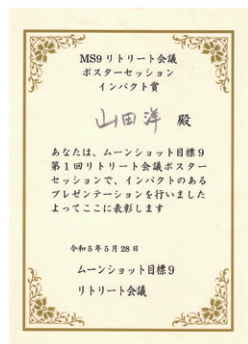 MS9 リトリート会議
ポスターセッション
インパクト賞
山田洋 殿
あなたは、ムーンショット目標９
第１回リトリート会議ポスター
セッションで、インパクトのある
プレゼンテーションを行いました
よってここに表彰します
令和５年５月２８日
ムーンショット目標９
リトリート会議